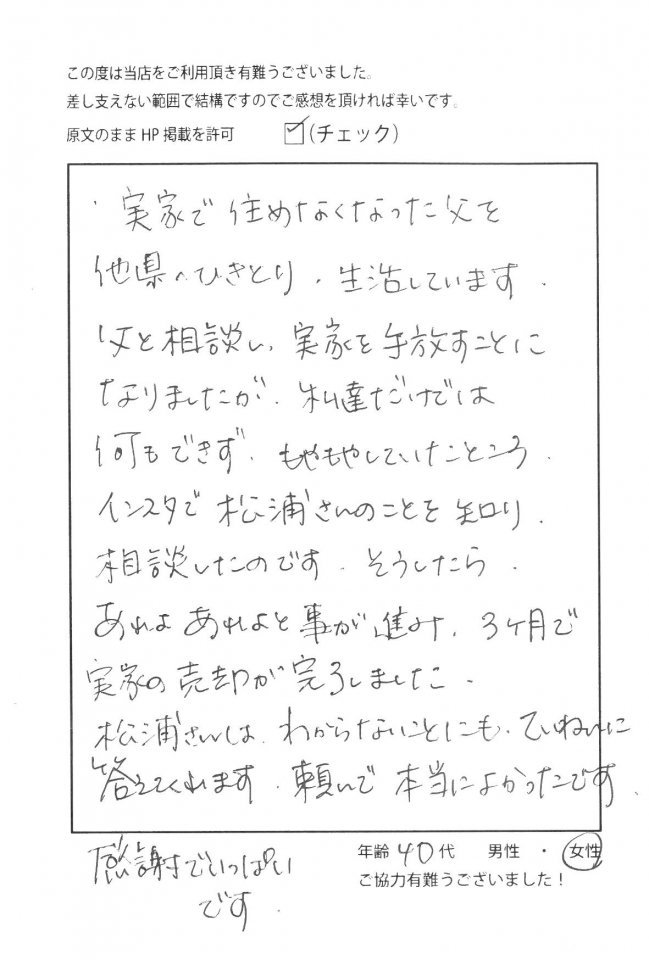 この度は当店をご利用頂き有難うございました。
差し支えない範囲で結構ですのでご感想を頂ければ幸いです。
原文のまま HP 掲載を許可 ☑(チェック)
実家で住めなくなった父を
他県へひきとり、生活しています。
父と相談し、実家を手放すことに
なりましたが、私達だけでは
何もできず、もやもやしていたところ、
インスタで松浦さんのことを知り、
相談したのです。そうしたら、
あれよあれよと事が進み、3ヶ月で
実家の売却が完了しました。
松浦さんは、わからないことにも、ていねいに
答えてくれます。頼んで本当によかったです。
感謝でいっぱい
です。
年齢 40 代 男性 ・ 女性
ご協力有難うございました！